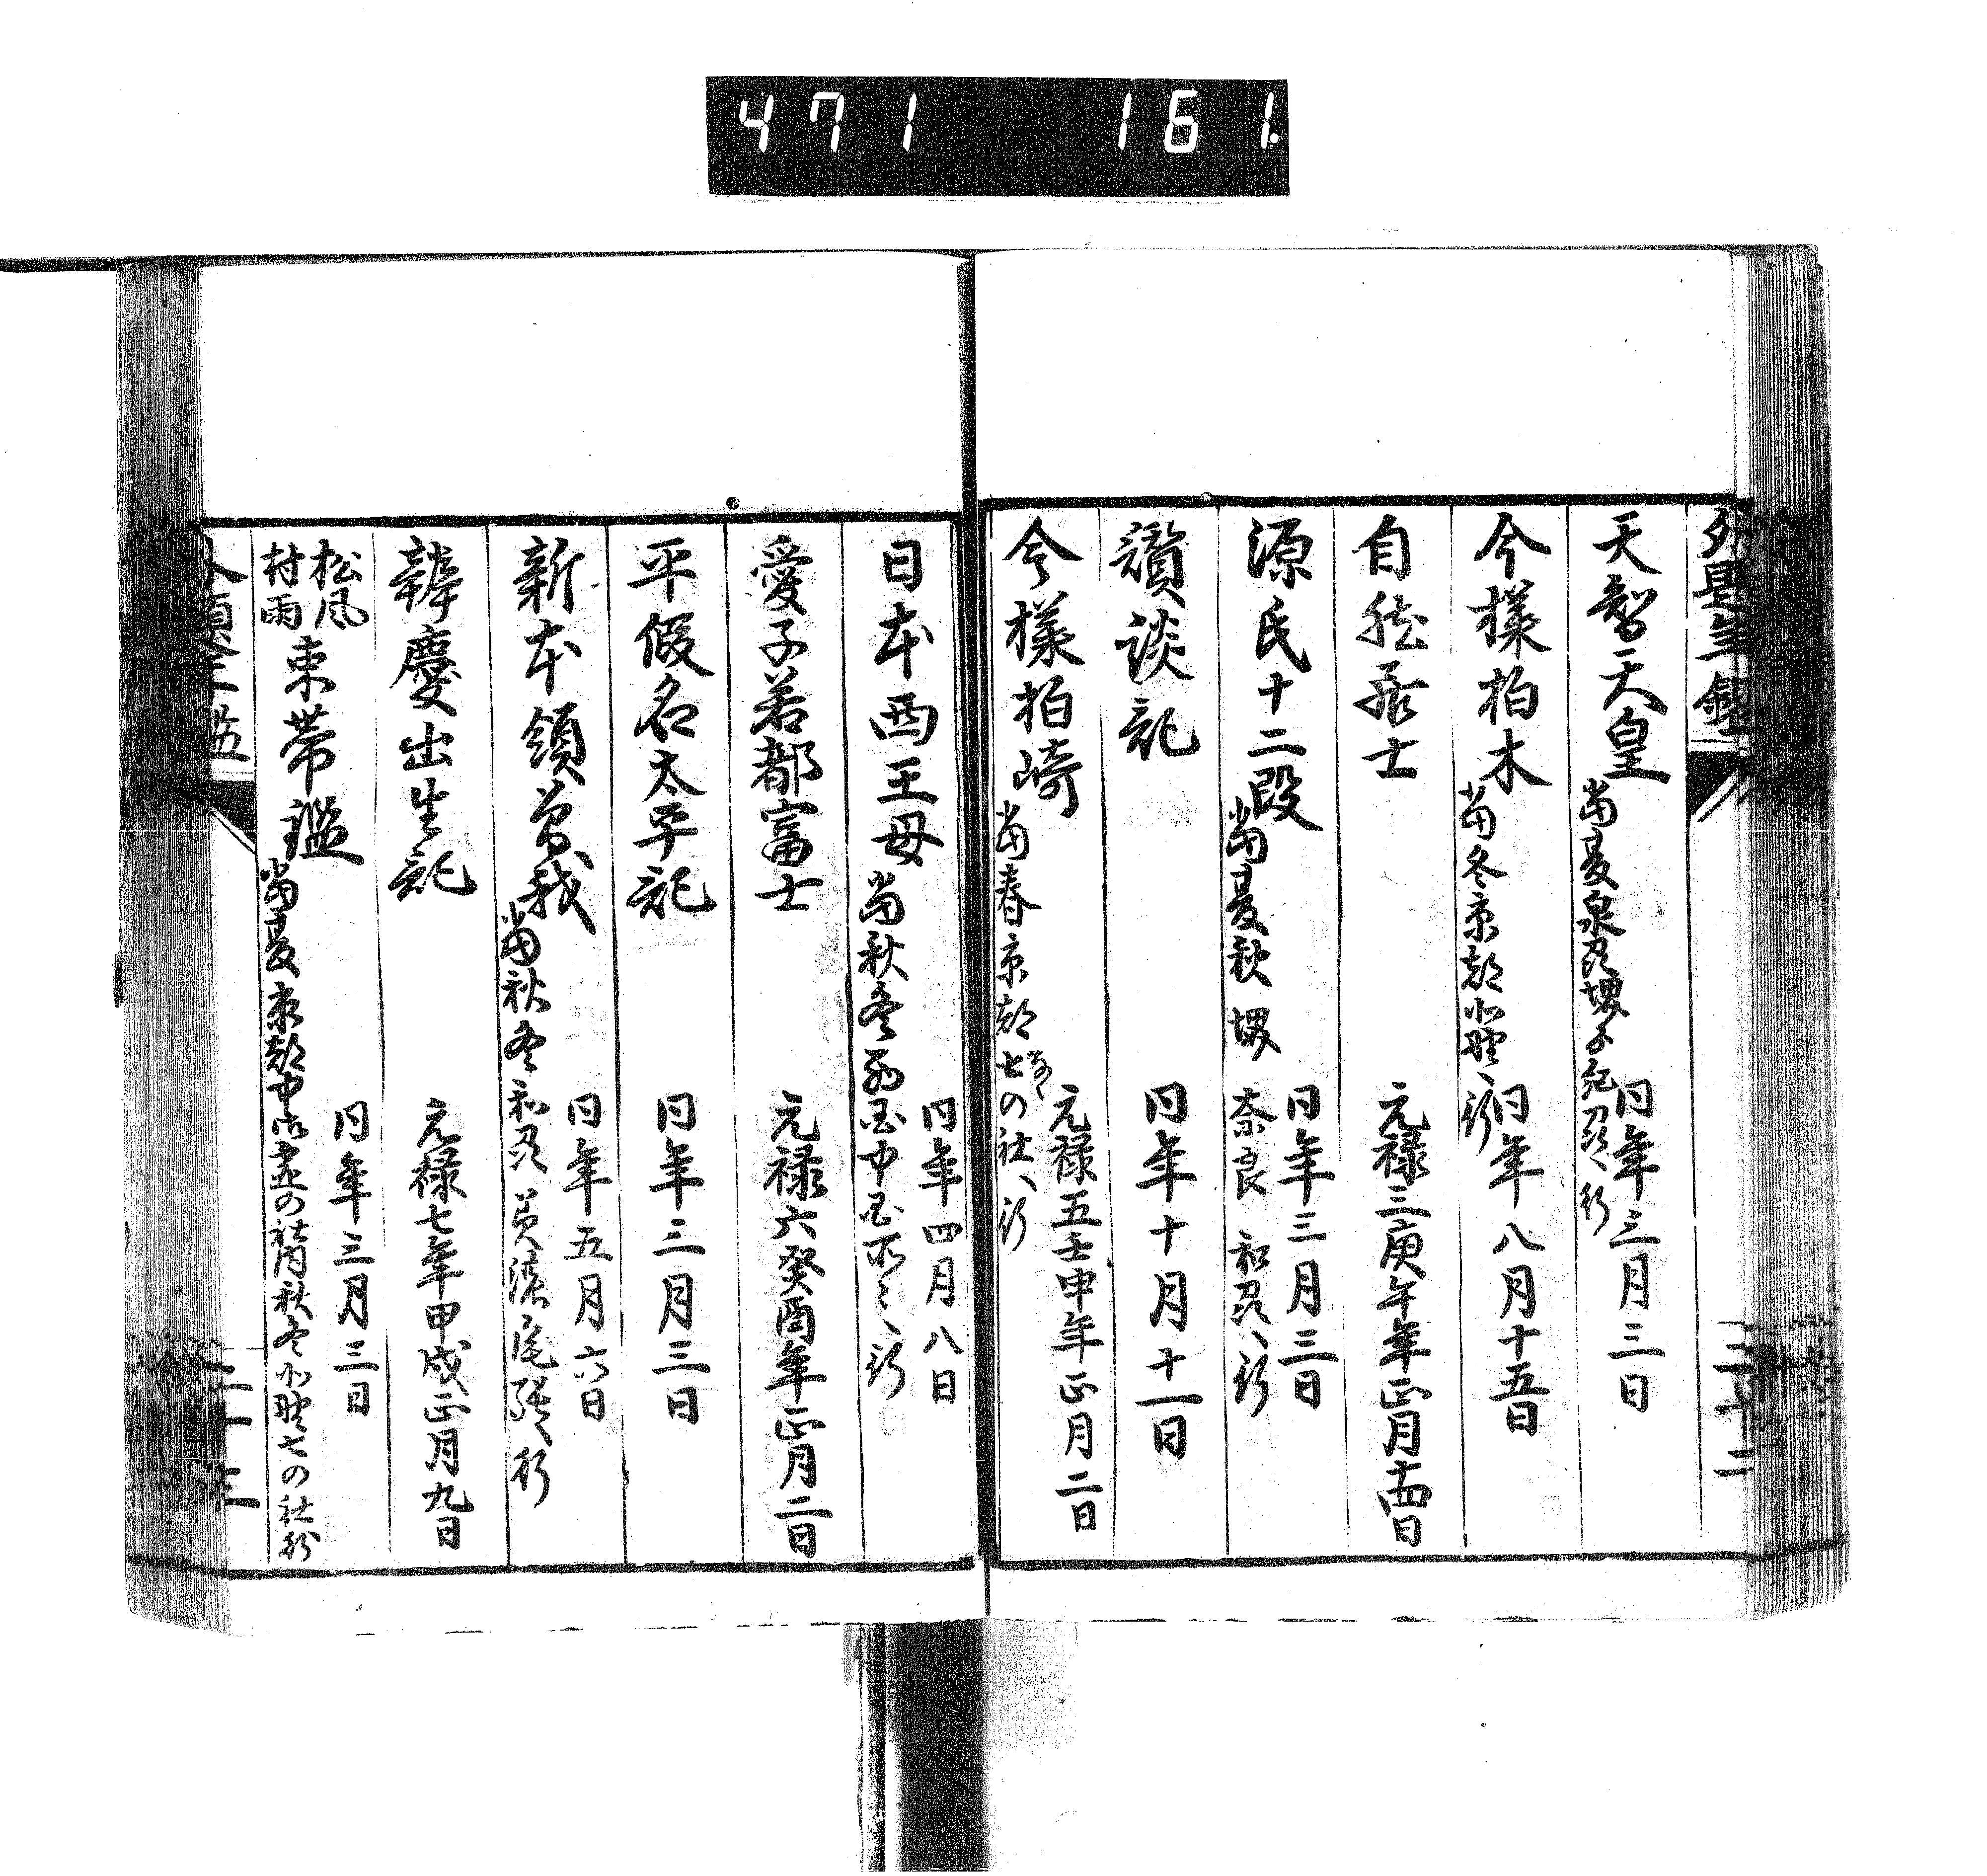 471 161.
天智天皇
同年三月三日
当夏泉州堺
今様柏木
同年八月十五日
当冬京都北野
自然居士
元禄三庚午年正月十四日
源氏十二段
同年三月三日
当夏秋堺 奈良 和州へ行
讃談記
同年十月十一日
今様柏崎
元禄五壬申年正月二日
当春京都七の社へ行
日本西王母
同年四月八日
当秋冬西国中国所々へ行
愛子若都富士
元禄六癸酉年正月二日
平假名太平記
同年三月三日
新本領曽我
同年五月六日
当秋冬和州 美濃尾張へ行
辨慶出生記
元禄七年甲戌正月九日
松風
村雨
束帯鑑
同年三月三日
当夏京都中 の社内秋冬北野七の社行
三十三